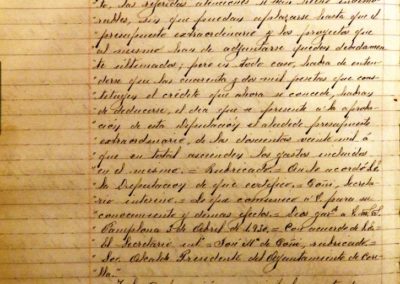 to, las referidas atenciones si son
rables, sin que puedan aplazarse hasta que el
"presupuesto extraordinario y los proyectos que
"al mismo han de adjuntarse queden debidamen
"te ultimados; pero en todo caso, habrá de enten
"derse que las cuarenta y dos mil pesetas que cons
"tituyen el crédito que ahora se concede, habrán
"de deducirse, el día que se presente a la aproba
"ción de esta Diputación el aludido presupuesto
"extraordinario, de las doscientas veinte mil á
"que en total ascienden los gastos incluidos
"en el mismo.= Rubricado.= Así lo acordó
"la Diputación de que certifico.= Goñi, Secreta
"rio interino.= Lo que comunico á S. para su
"conocimiento y demás efectos.= Dios gue. a S. m. a.
"Pamplona 5 de Abril de 1930.= Con acuerdo de S. E.
"El Secretario int.= José Mª de Goñi, rubricado=
"Sr. Alcalde Presidente del Ayuntamiento de Core
"lla."